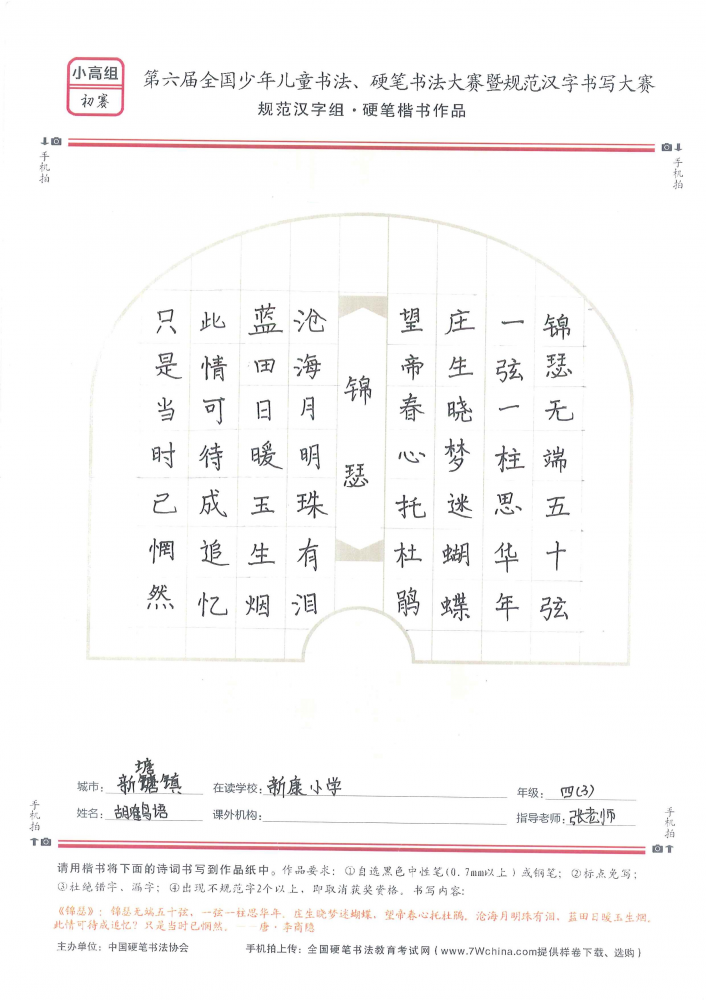 小高组
初赛
第六届全国少年儿童书法、硬笔书法大赛暨规范汉字书写大赛
规范汉字组·硬笔楷书作品
手机拍
手机拍
锦瑟无端五十弦
一弦一柱思华年
庄生晓梦迷蝴蝶
望帝春心托杜鹃
锦瑟
沧海月明珠有泪
蓝田日暖玉生烟
此情可待成追忆
只是当时已惘然
城市：新塘镇
在读学校：新康小学
年级：四(3)
姓名：胡鹤语
课外机构：
指导老师：张老师
手机拍
手机拍
请用楷书将下面的诗词书写到作品纸中。作品要求：①自选黑色中性笔(0.7mm以上)或钢笔；②标点免写；
③杜绝错字、漏字；④出现不规范字2个以上，即取消获奖资格。书写内容：
《锦瑟》：锦瑟无端五十弦，一弦一柱思华年。庄生晓梦迷蝴蝶，望帝春心托杜鹃。沧海月明珠有泪，蓝田日暖玉生烟。
此情可待成追忆？只是当时已惘然。——唐·李商隐
主办单位：中国硬笔书法协会
手机拍上传：全国硬笔书法教育考试网(www.7Wchina.com提供样卷下载、选购)